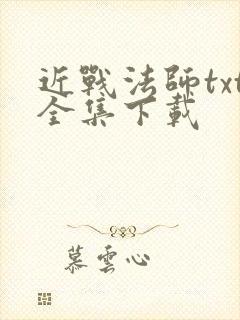 近戰法師txt
全集下載
慕雲心